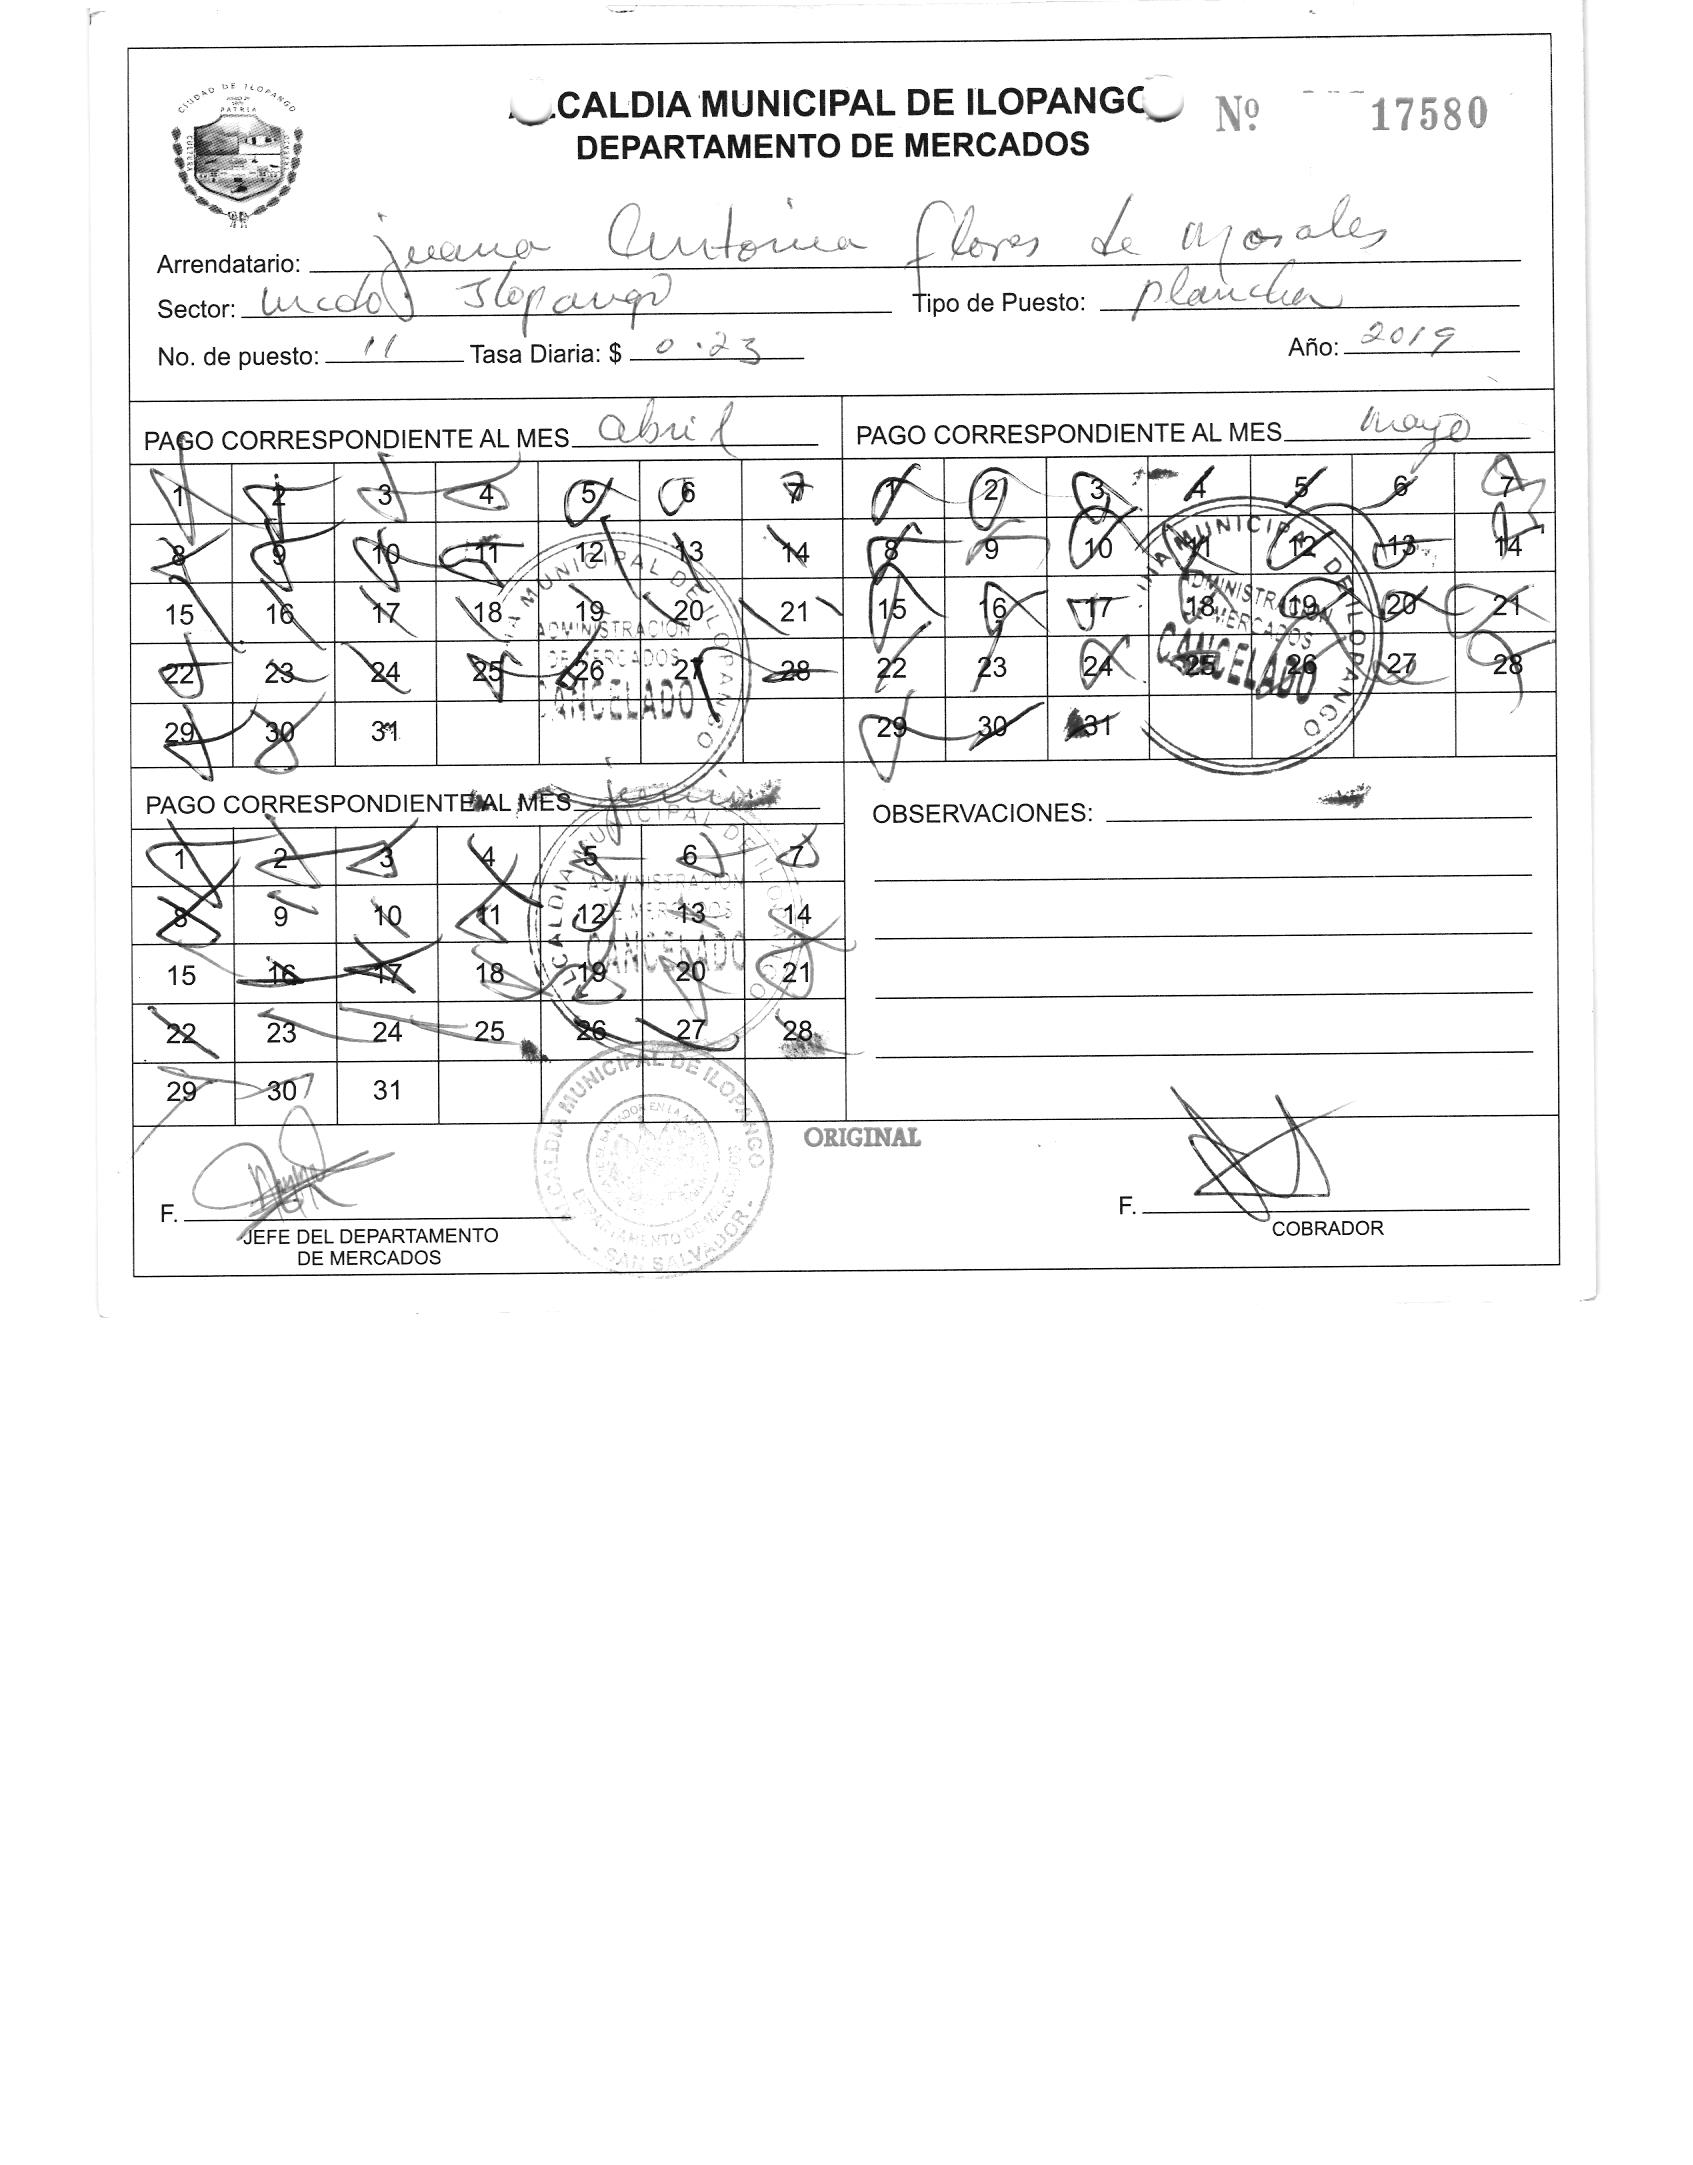 CIUDAD DE ILOPANGO
PATRIA
CULTURA
ALCALDIA MUNICIPAL DE ILOPANGO
Nº 17580
DEPARTAMENTO DE MERCADOS
Arrendatario: juana Antonia flores de Morales
Sector: mcdo Ilopango Tipo de Puesto: plancha
No. de puesto: 11 Tasa Diaria: $ 0.23 Año: 2019
PAGO CORRESPONDIENTE AL MES abril
1 2 3 4 5 6 7
8 9 10 11 12 13 14
15 16 17 18 19 20 21
22 23 24 25 26 27 28
29 30 31
ALCALDIA MUNICIPAL DE ILOPANGO
ADMINISTRACION
DE MERCADOS
CANCELADO
PAGO CORRESPONDIENTE AL MES mayo
1 2 3 4 5 6 7
8 9 10 11 12 13 14
15 16 17 18 19 20 21
22 23 24 25 26 27 28
29 30 31
MUNICIPAL DE ILOPANGO
ADMINISTRACION
DE MERCADOS
CANCELADO
PAGO CORRESPONDIENTE AL MES junio
1 2 3 4 5 6 7
8 9 10 11 12 13 14
15 16 17 18 19 20 21
22 23 24 25 26 27 28
29 30 31
ALCALDIA MUNICIPAL DE ILOPANGO
ADMINISTRACION
DE MERCADOS
CANCELADO
OBSERVACIONES:
ALCALDIA MUNICIPAL DE ILOPANGO
DEPARTAMENTO DE MERCADOS
- SAN SALVADOR -
ORIGINAL
F.
JEFE DEL DEPARTAMENTO
DE MERCADOS
F.
COBRADOR